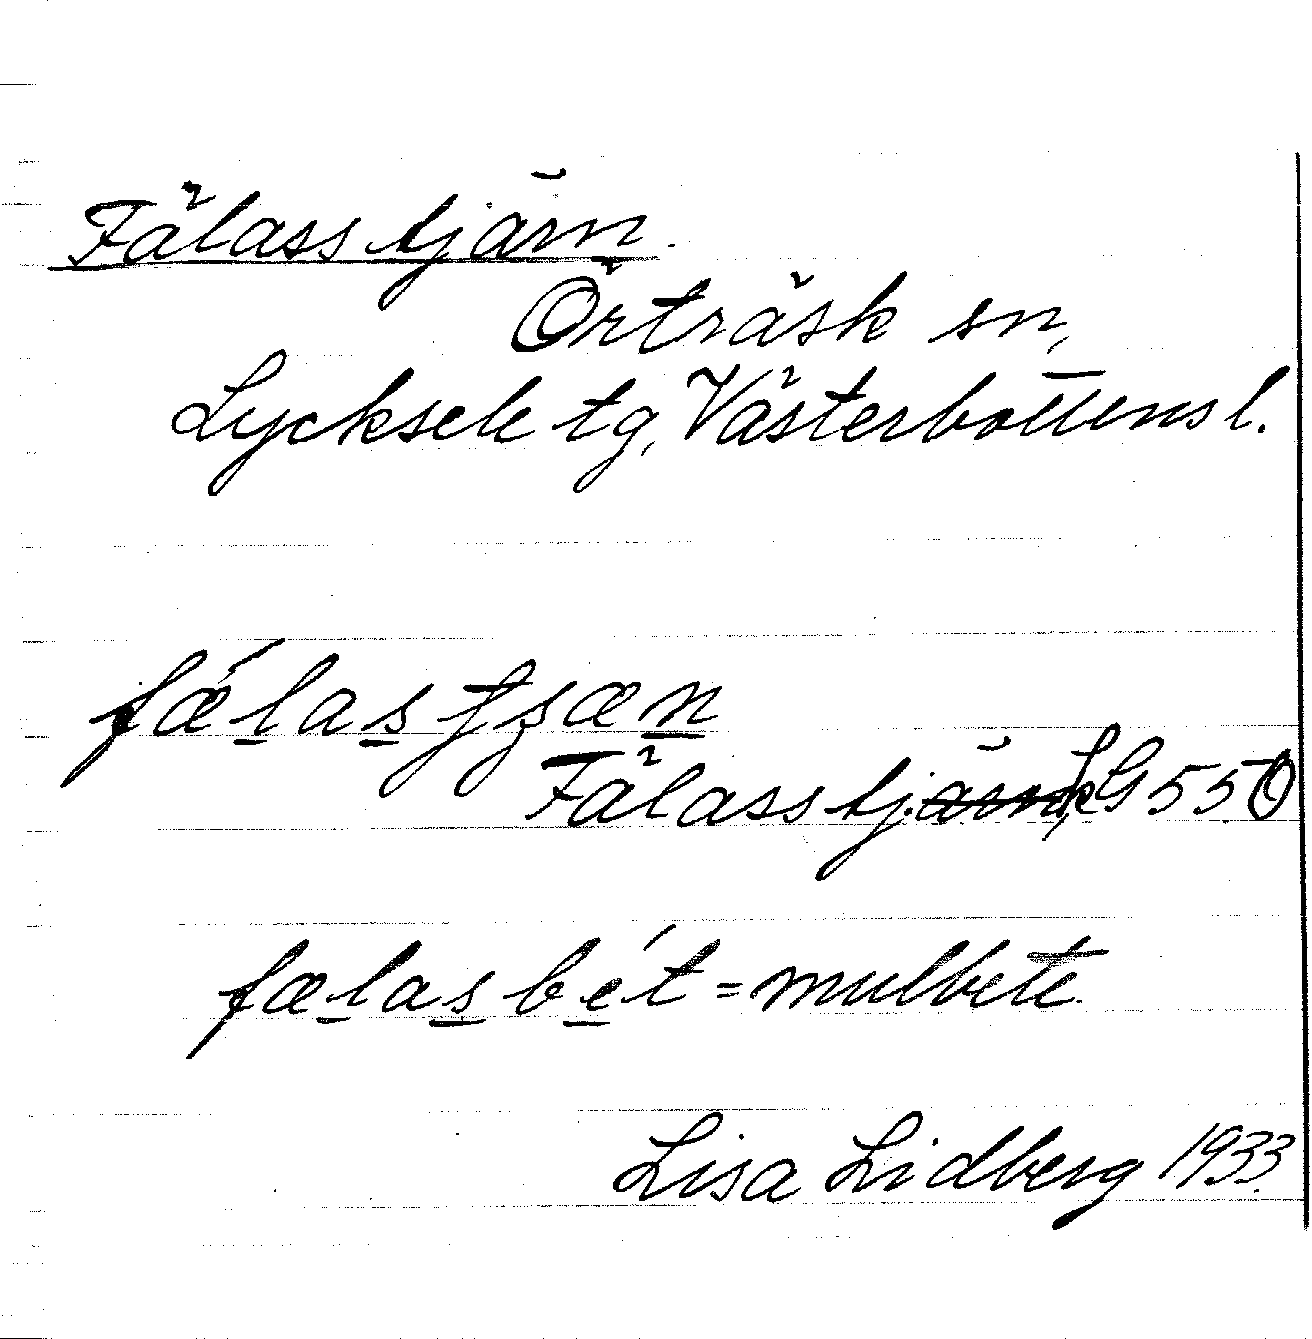 Fälasstjärn.
Örträsk sn,
Lycksele tg, Västerbottens l.
fǽlastʂæn
Fälasstj. LG 550
fælasbét = mulbete
Lisa Lidberg 1933.